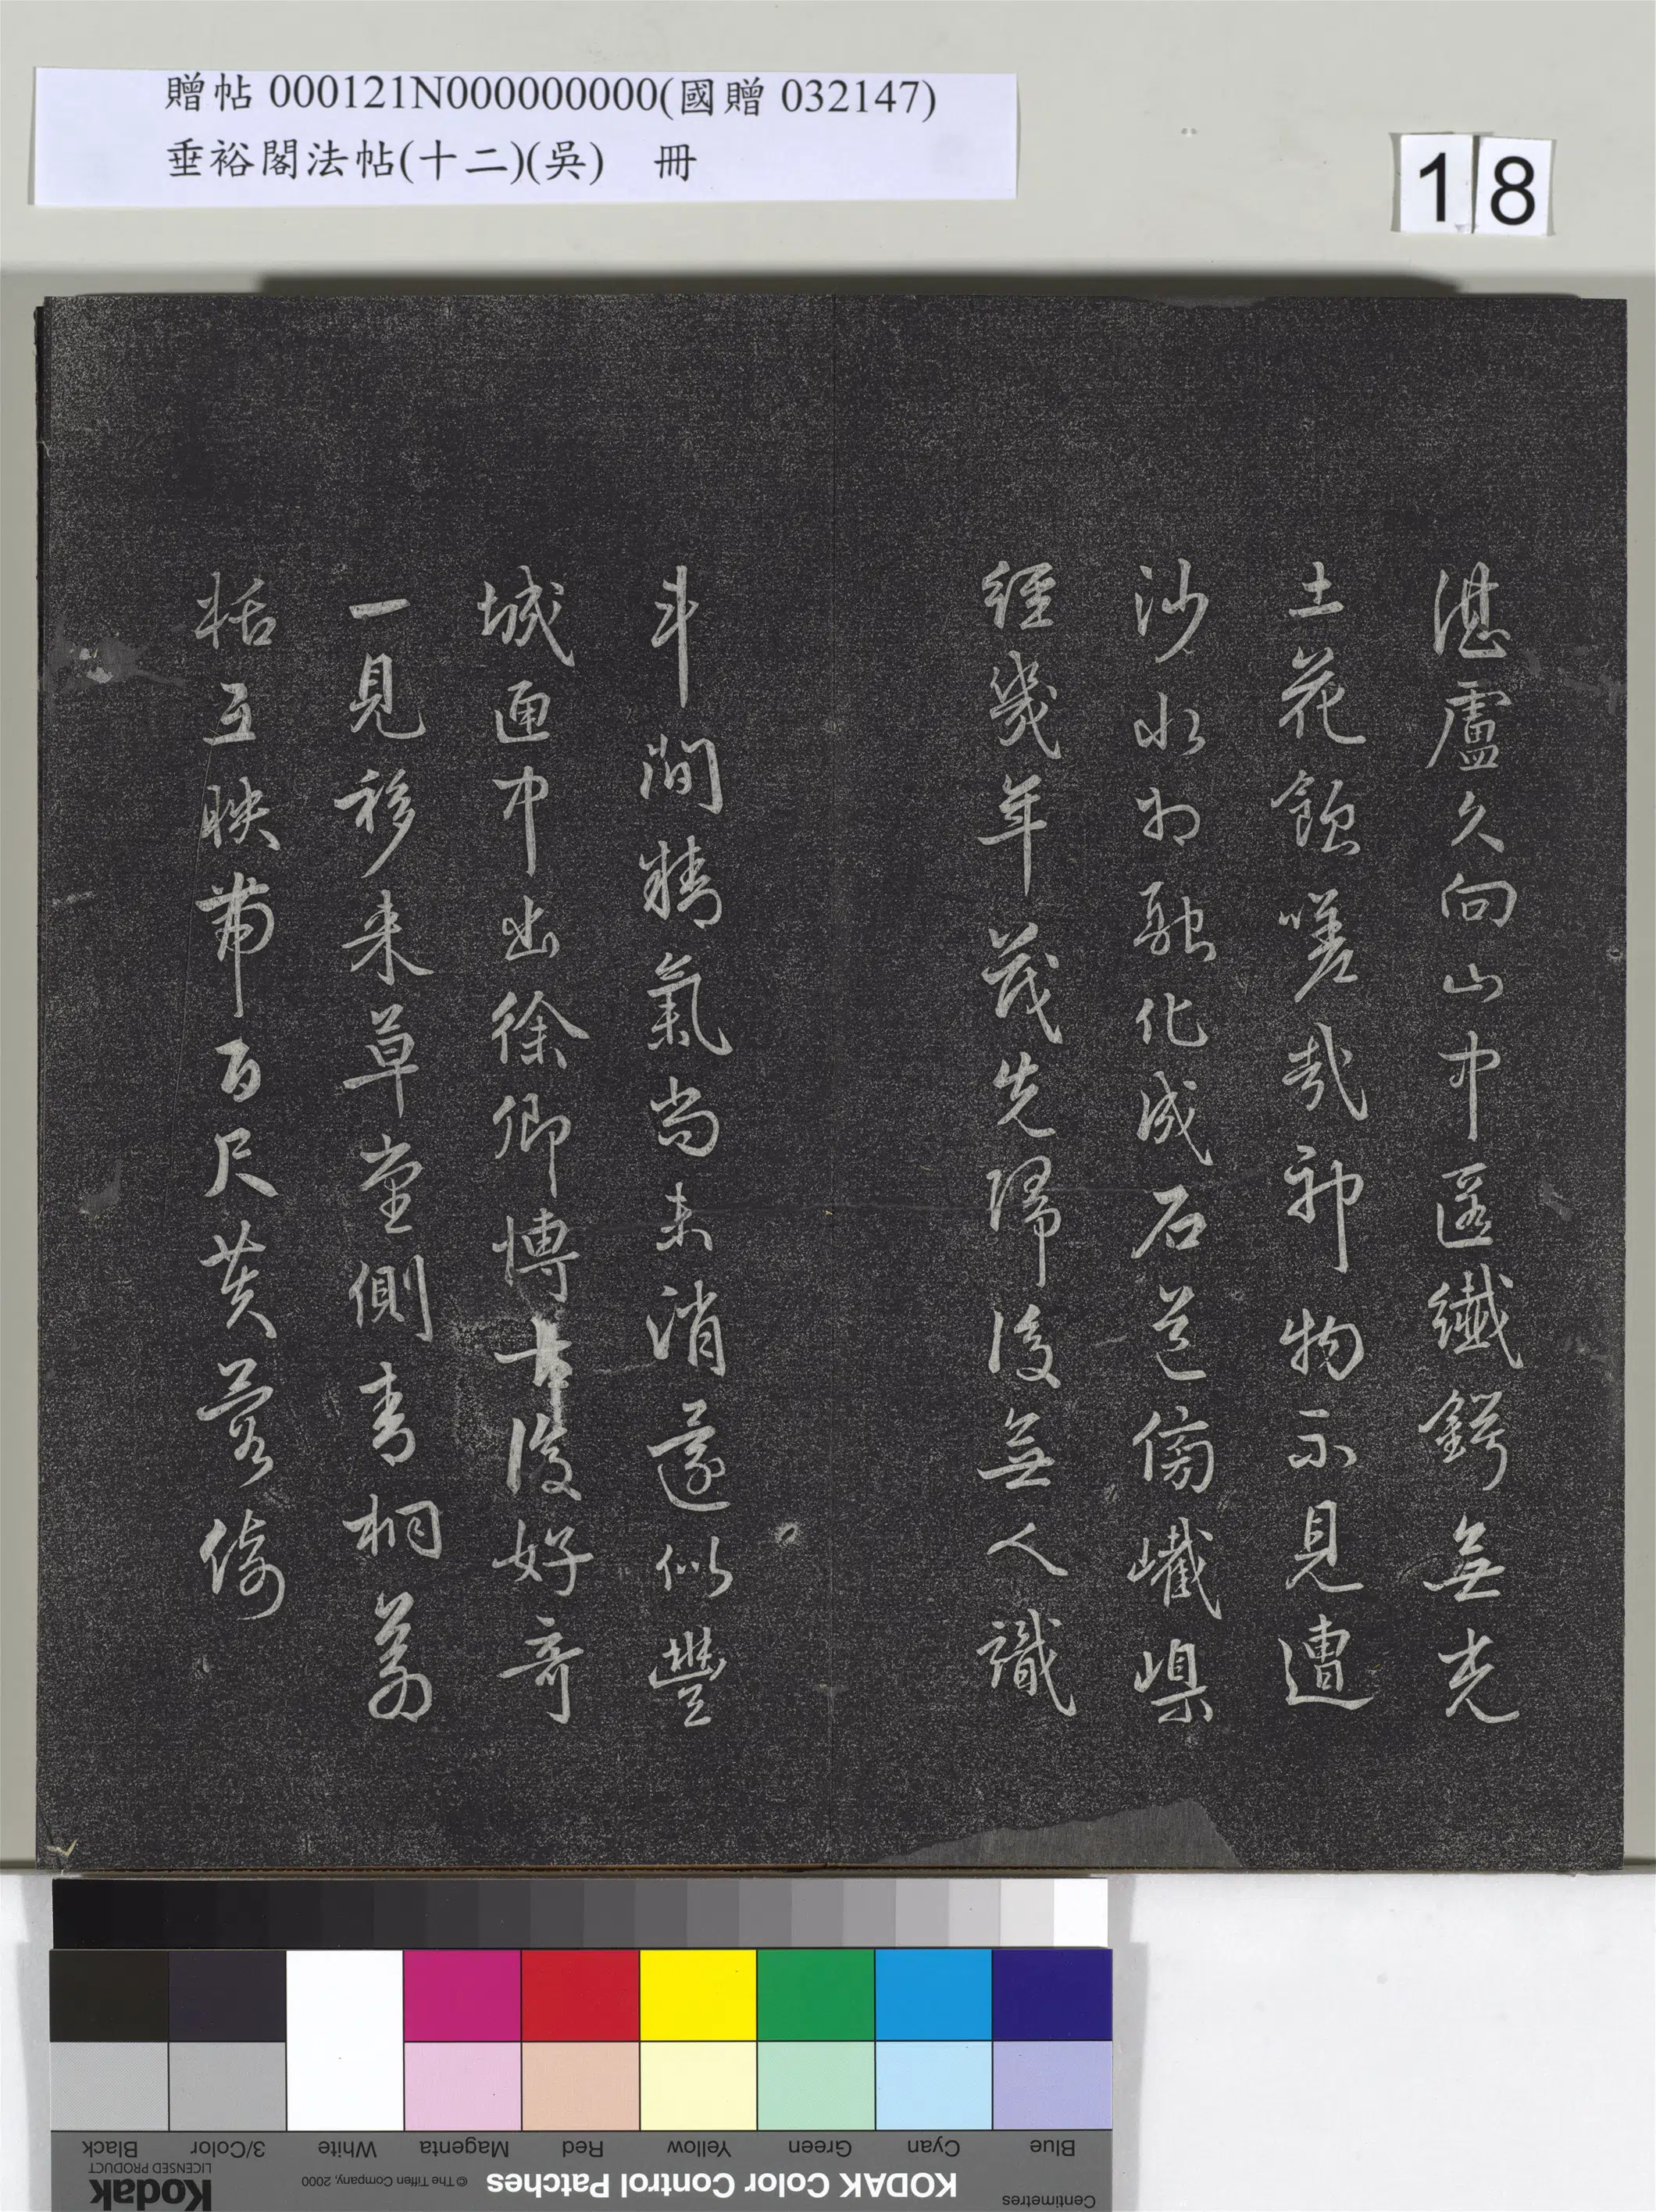 贈帖 000121N000000000(國贈 032147)
垂裕閣法帖(十二)(吳) 冊
18
湛盧久向山中匿纖鍔無光
土花蝕嗟哉神物不見遭
沙水相融化成石道傍嶻嵲
經幾年茂先歸後無人識
斗間精氣尚未消遂似豐
城匣中出徐卿博古復好奇
一見移來草堂側青桐
栝互映帶百尺芙蓉倚
Centimetres
Blue Cyan Green Yellow Red Magenta White 3/Color Black
KODAK Color Control Patches © The Tiffen Company, 2000 Kodak LICENSED PRODUCT